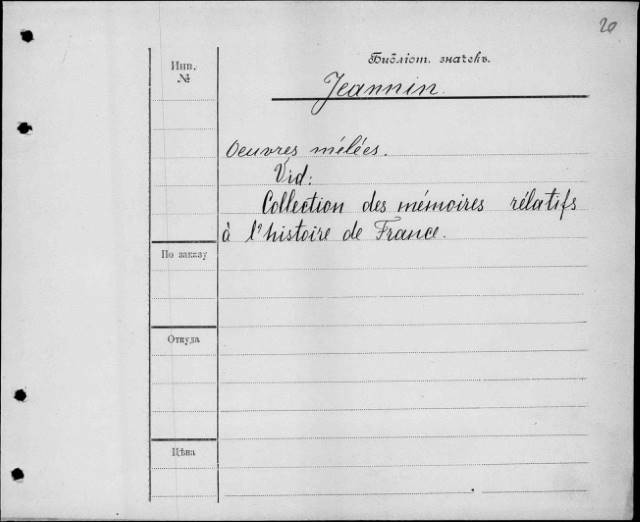 20
Библіот. значекъ.
Инв.
№
Jeannin.
Oeuvres mélées.
Vid:
Collection des mémoires rélatifs
à l'histoire de France.
По заказу
Откуда
Цѣна